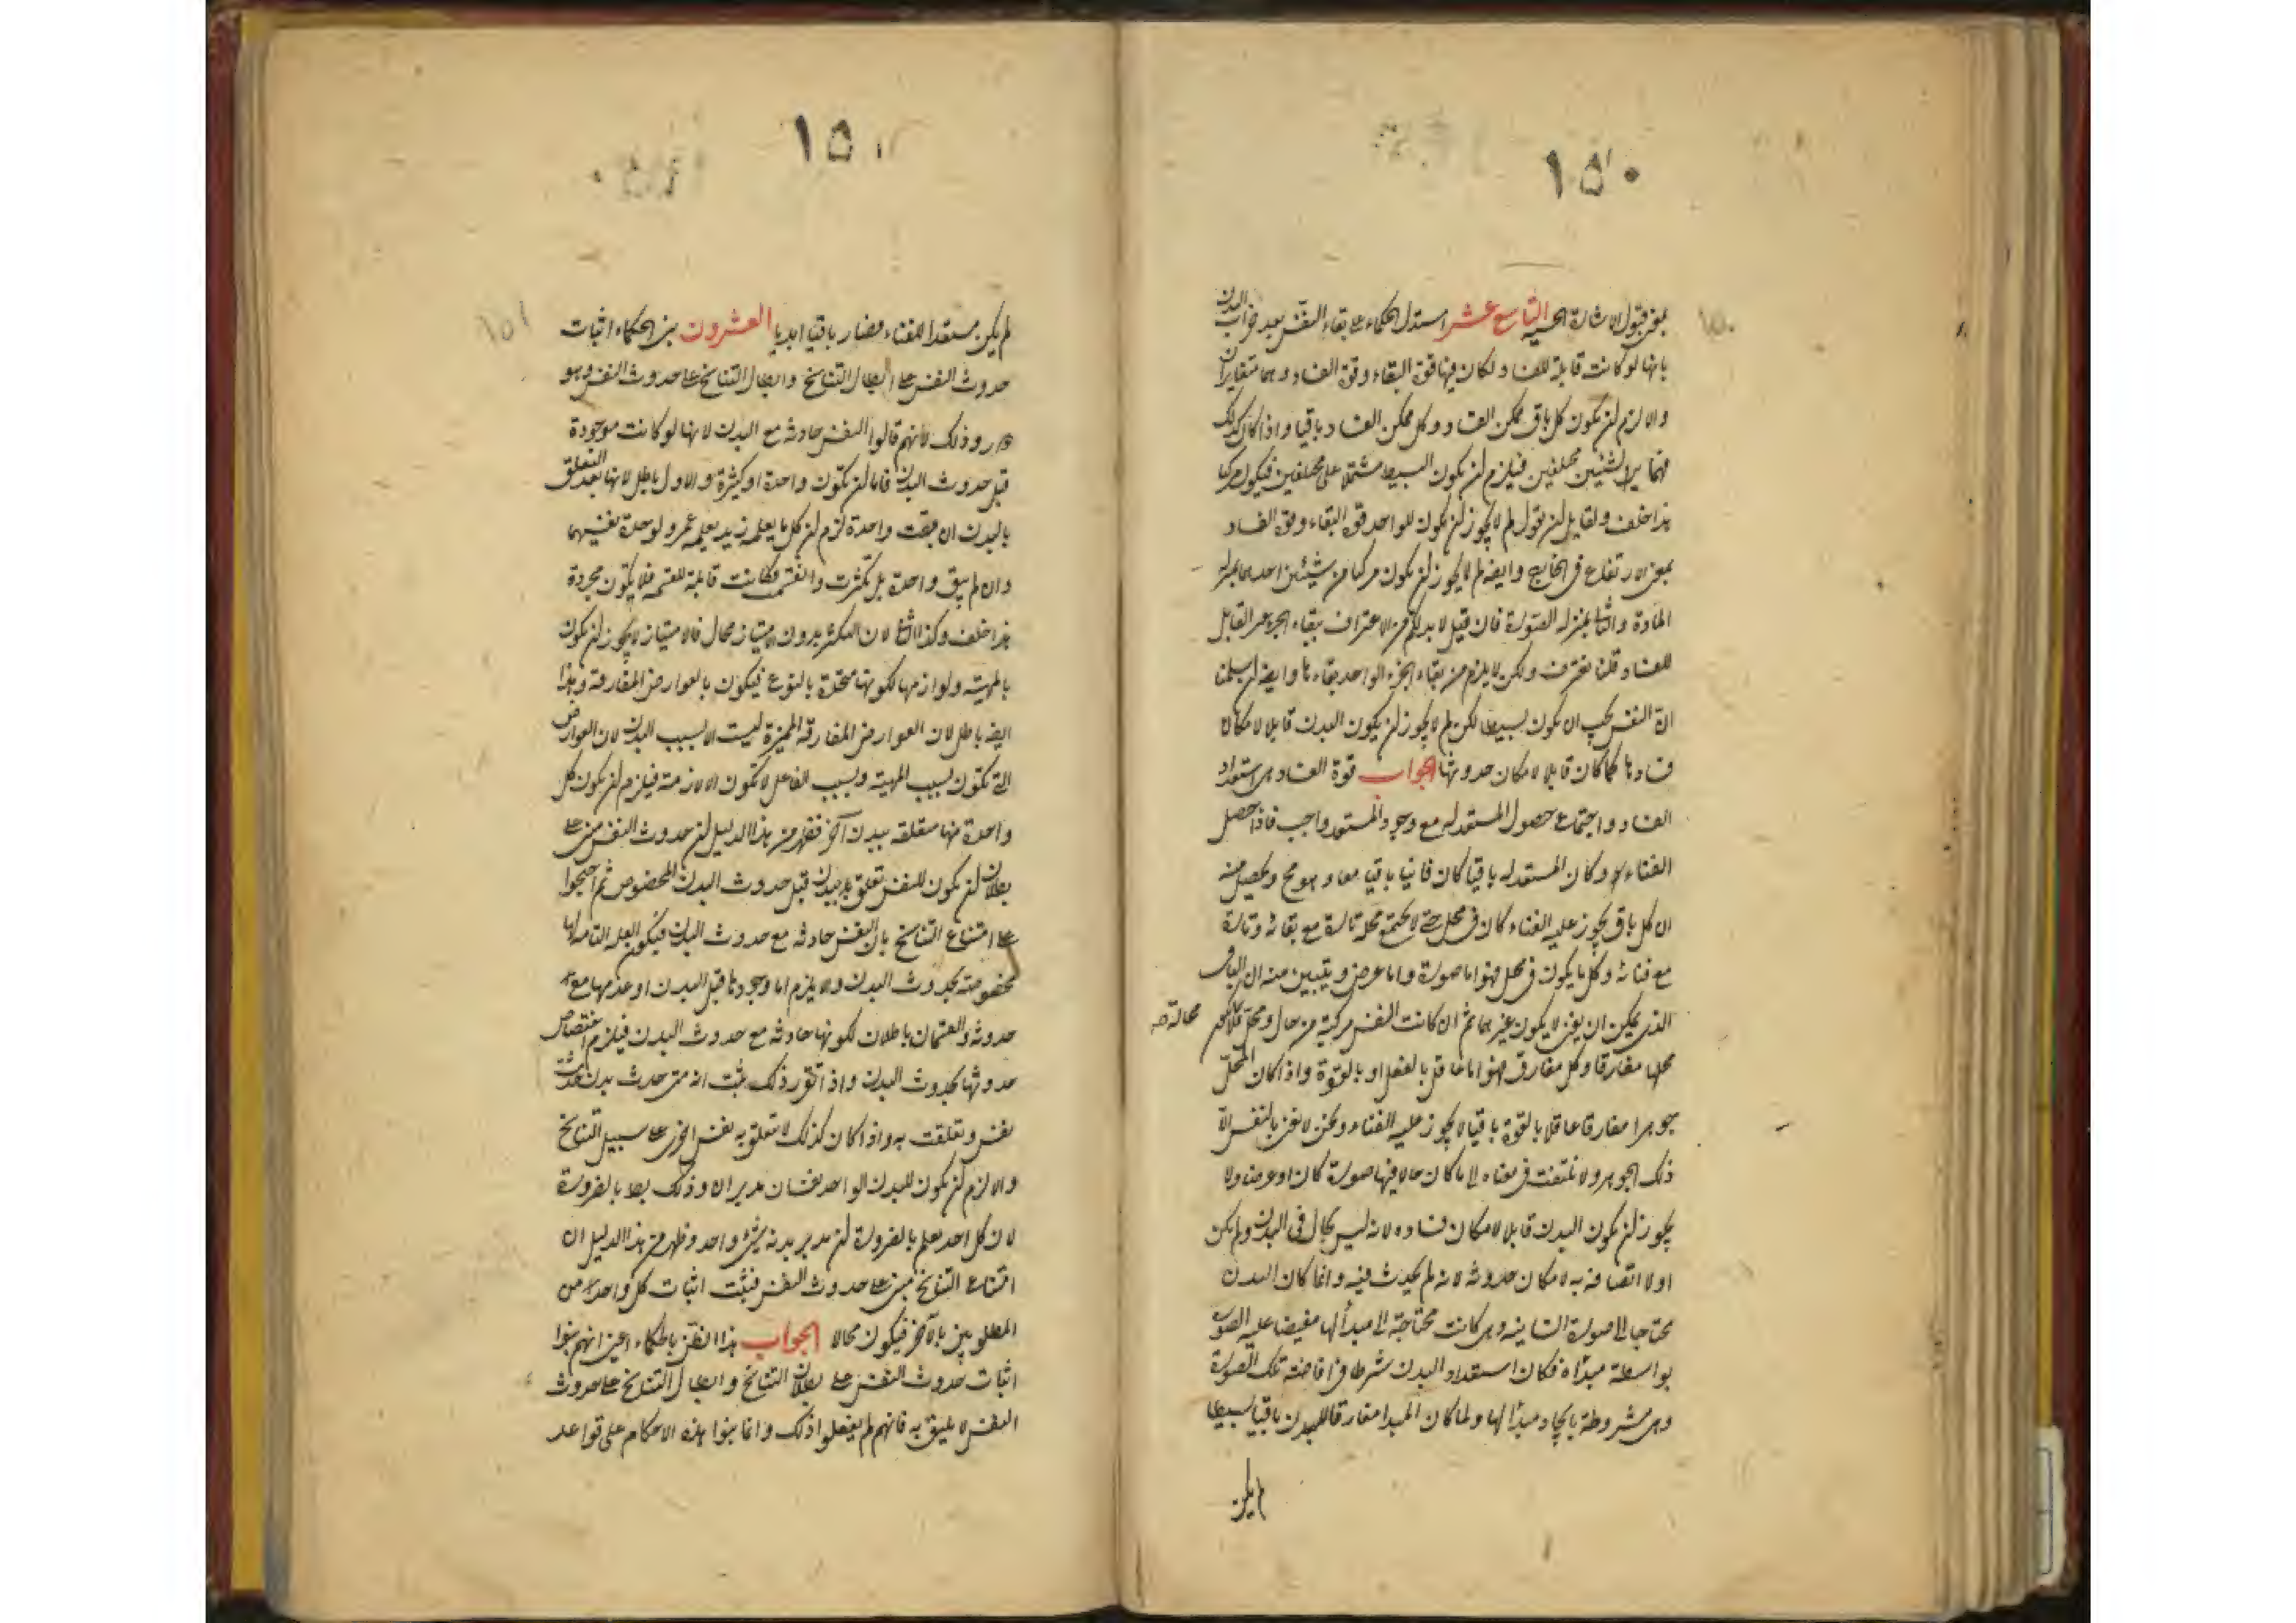 ١٥٠
بمعنى قبول الاشارة الحسية التاسع عشر استدل الحكماء على بقاء النفس بعد خراب البدن
بانها لو كانت قابلة للفساد لكان فيها قوة البقاء وقوة الفساد وهما متغايران
والا لزم ان يكون كل باق ممكن الفساد وكل ممكن الفساد باقيا واذا كان كذلك
فهما لشيئين مختلفين فيلزم ان يكون البسيط مشتملا على مختلفين فيكون مركبا
هذا خلف ولقايل ان يقول لم لا يجوز ان يكون للواحد قوة البقاء وقوة الفساد
بمعنى الارتفاع في الخارج وايضا لم لا يجوز ان يكون مركبا من شيئين احدهما بمنزلة
المادة والثاني بمنزلة الصورة فان قيل لا بد لكم من الاعتراف ببقاء الجزء القابل
للفساد قلنا نعترف ولكن لا يلزم من بقاء الجزء الواحد بقاءها وايضا ان سلمنا
ان النفس يجب ان يكون بسيطا لكن لم لا يجوز ان يكون البدن قابلا لامكان
فسادها كما كان قابلا لامكان حدوثها الجواب قوة الفساد هى استعداد
الفساد واجتماع حصول المستعد له مع وجود المستعد واجب فاذا حصل
الفناء وكان المستعد له باقيا كان فانيا باقيا معا وهو مح ويحصل منه
ان كل باق يجوز عليه الفناء كان في محل حتى لا يجتمع محله تارة مع بقائه وتارة
مع فنائه وكل ما يكون في محل فهو اما صورة واما عرض ويتبين منه ان الباقى
الذى يمكن ان يفنى لا يكون غيرهما ثم ان كانت النفس مركبة من حال ومحل فلا محالة
محلها مفارقا وكل مفارق فهو اما عاقل بالفعل او بالقوة واذا كان المحل
جوهرا مفارقا عاقلا بالقوة باقيا لا يجوز عليه الفناء ونحن لا نعنى بالنفس الا
ذلك الجوهر ولا نلتفت في بقاء الى ما كان حالا فيها صورة كان او عرضا ولا
يجوز ان يكون البدن قابلا لامكان فساده لانه ليس بحال في البدن ولم يكن
اولا اتصافه به لامكان حدوثه لانه لم يحدث فيه وانما كان البدن
محتاجا الى صورة انسانية وهى كانت محتاجة الى مبدأ لها مفيضا عليه الصور
بواسطة مبدأه فكان استعداد البدن شرطا في افاضة تلك الصورة
وهى مشروطة بايجاد مبدأ لها ولما كان المبدا مفارقا للبدن باقيا بسيطا
لم يكن
١٥١
لم يكن مستعدا للفناء فصار باقيا ابديا العشرون بنى الحكماء اثبات
حدوث النفس على ابطال التناسخ وابطال التناسخ على حدوث النفس وهو
دور وذلك لانهم قالوا النفس حادثة مع البدن لانها لو كانت موجودة
قبل حدوث البدن فاما ان تكون واحدة او كثيرة والاول باطل لانها بعد التعلق
بالبدن ان بقيت واحدة لزم ان كل ما يعلمه زيد يعلمه عمرو لوحدة نفسيهما
وان لم يبق واحدة بل تكثرت وانقسمت فكانت قابلة للقسمة فلا يكون مجردة
هذا خلف وكذا الثانى لان التكثر بدون الامتياز محال فالامتياز لا يجوز ان يكون
بالمهية ولوازمها لكونها متحدة بالنوع فيكون بالعوارض المفارقة وهذا
ايضا باطل لان العوارض المفارقة المميزة ليست الا بسبب البدن لان العوارض
التى تكون بسبب المهية وبسبب الفاعل لا تكون الا لازمة فيلزم ان يكون كل
واحدة منها متعلقة ببدن آخر فظهر من هذا الدليل ان حدوث النفس مبنى على
بطلان ان يكون للنفس تعلق ببدن قبل حدوث البدن المخصوص ثم احتجوا
على امتناع التناسخ بان النفس حادثة مع حدوث البدن فيكون العلة التامة لها
مخصوصة بحدوث البدن والا يلزم اما وجودها قبل البدن او عدمها مع
حدوثه والقسمان باطلان لكونها حادثة مع حدوث البدن فيلزم اختصاص
حدوثها بحدوث البدن واذا تقرر ذلك ثبت انه متى حدث بدن حدثت
نفس وتعلقت به واذا كان كذلك لا تتعلق به نفس اخرى على سبيل التناسخ
والا لزم ان يكون للبدن الواحد نفسان مدبران وذلك بط بالضرورة
لان كل احد يعلم بالضرورة ان مدبر بدنه شىء واحد وظهر من هذا الدليل ان
امتناع التناسخ مبنى على حدوث النفس فبنيت اثبات كل واحد من
المطلوبين بالآخر فيكون محالا الجواب هذا الظن بالحكماء اعنى انهم بنوا
اثبات حدوث النفس على بطلان التناسخ وابطال التناسخ على حدوث
النفس لا يليق به فانهم لم يفعلوا ذلك وانما بنوا هذه الاحكام على قواعد